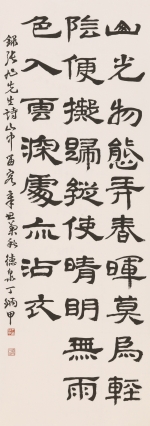 山光物態弄春暉莫爲輕
陰便擬歸縱使晴明無雨
色入雲深處亦沾衣
錄張旭先生詩山中留客 秋 德泉丁炳甲